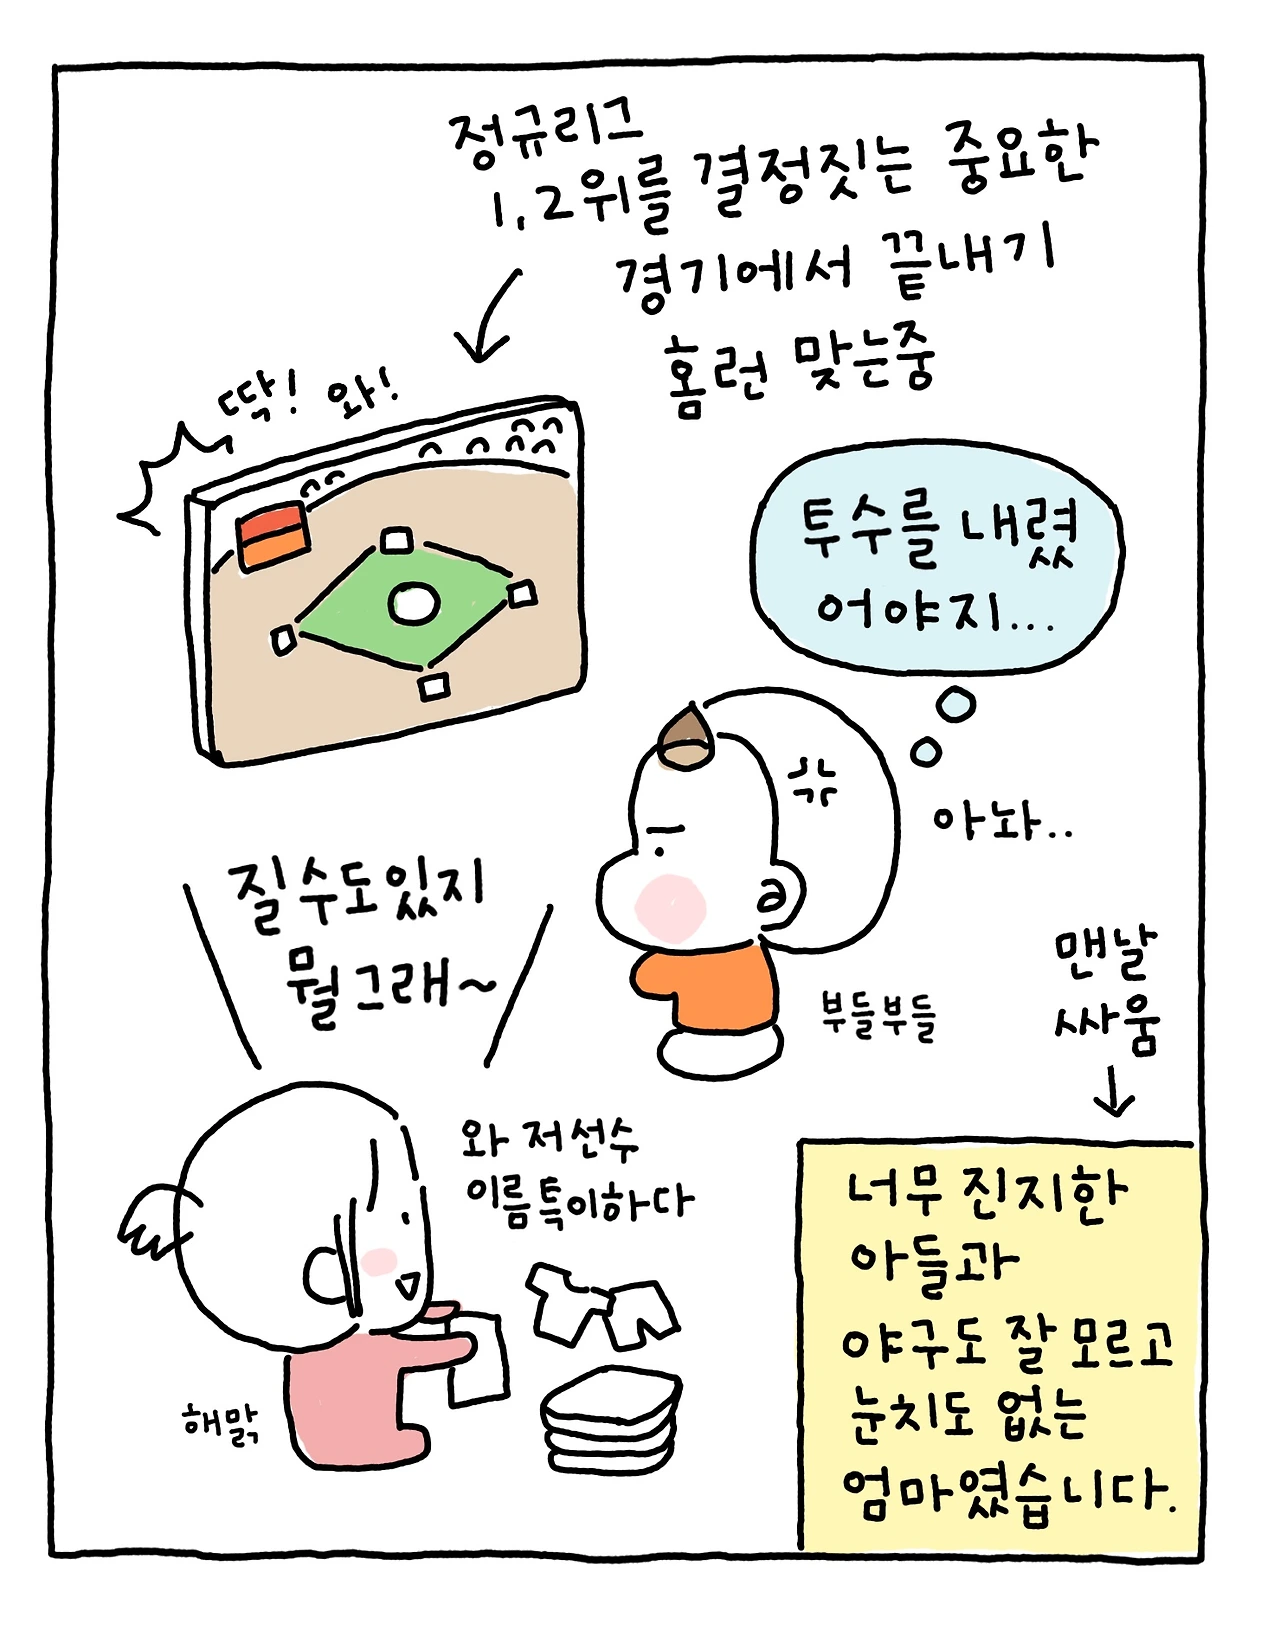 정규리그
1,2위를 결정짓는 중요한
경기에서 끝내기
홈런 맞는중
딱! 와!
투수를 내렸
어야지...
아놔..
질수도있지
뭘그래~
부들부들
맨날
싸움
와 저선수
이름특이하다
해맑
너무 진지한
아들과
야구도 잘 모르고
눈치도 없는
엄마였습니다.